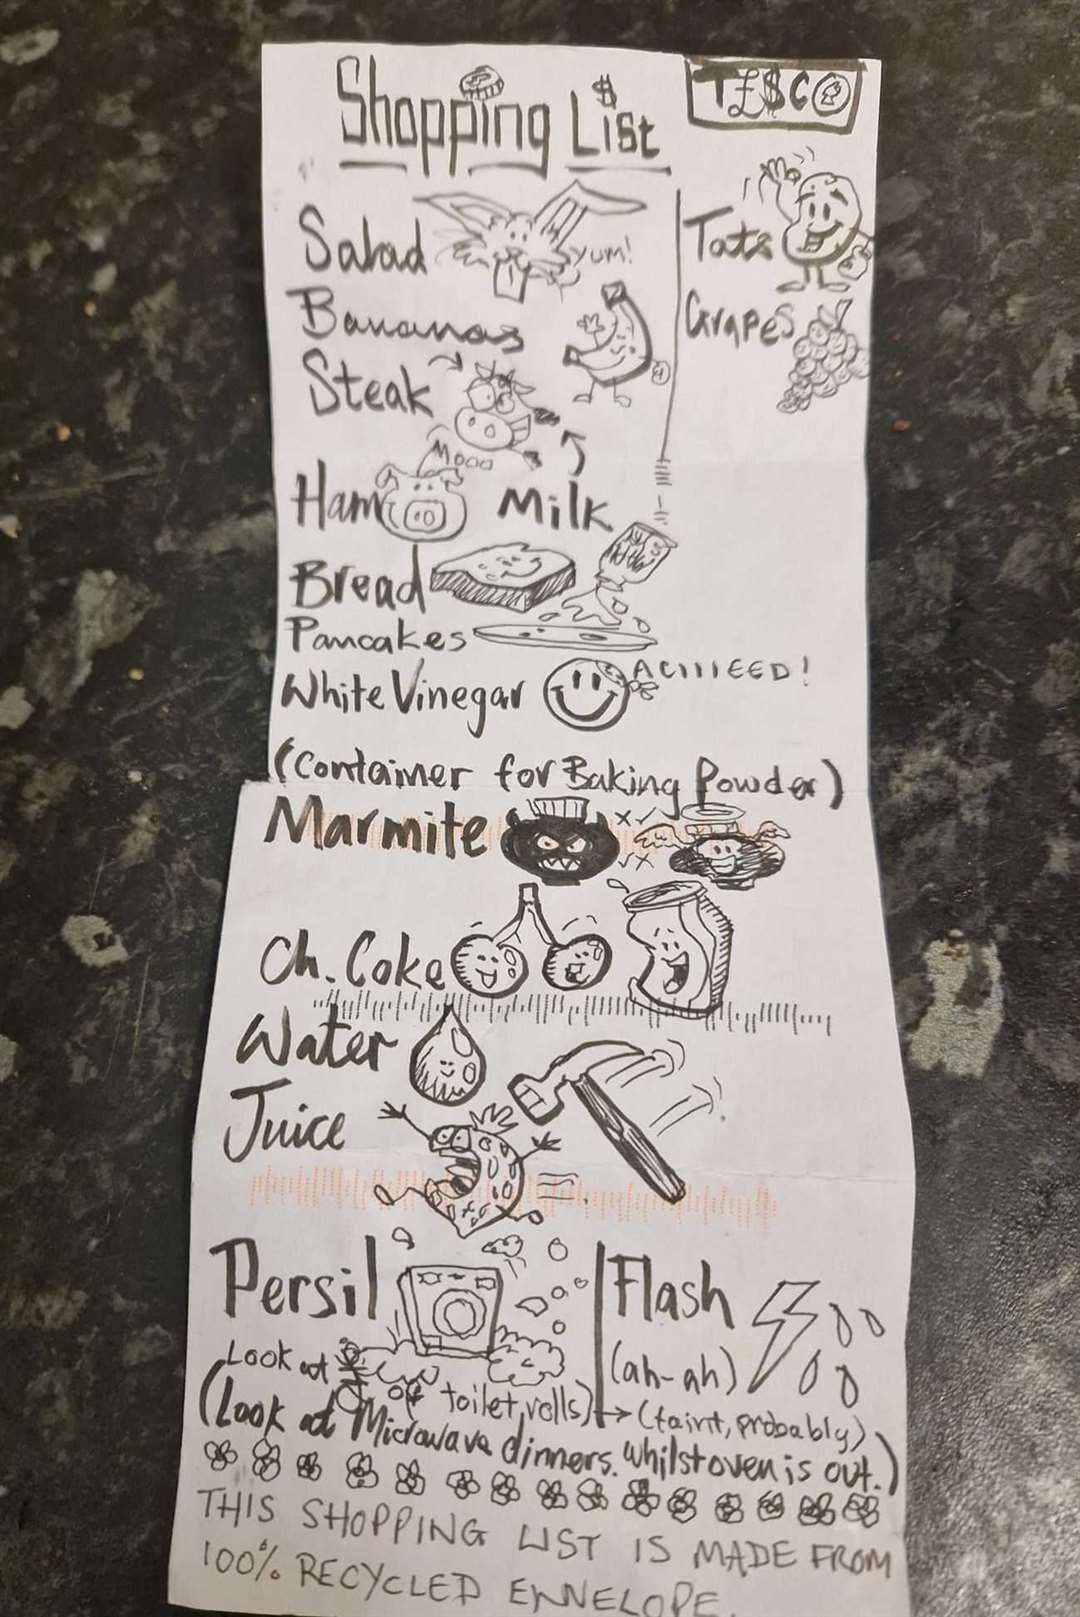 Shopping List
T£$CO
Salad
YUM!
Tats
Bananas
Grapes
Steak
Mooo
Ham
Milk
Bread
Pancakes
White Vinegar
ACIIIEED!
(Container for Baking Powder)
Marmite
Ch. Coke
Water
Juice
Persil
Flash
(ah-ah)
Look at
of toilet rolls)
(taint, probably)
(Look at Microwave dinners. whilst oven is out.)
THIS SHOPPING LIST IS MADE FROM
100% RECYCLED ENVELOPE.